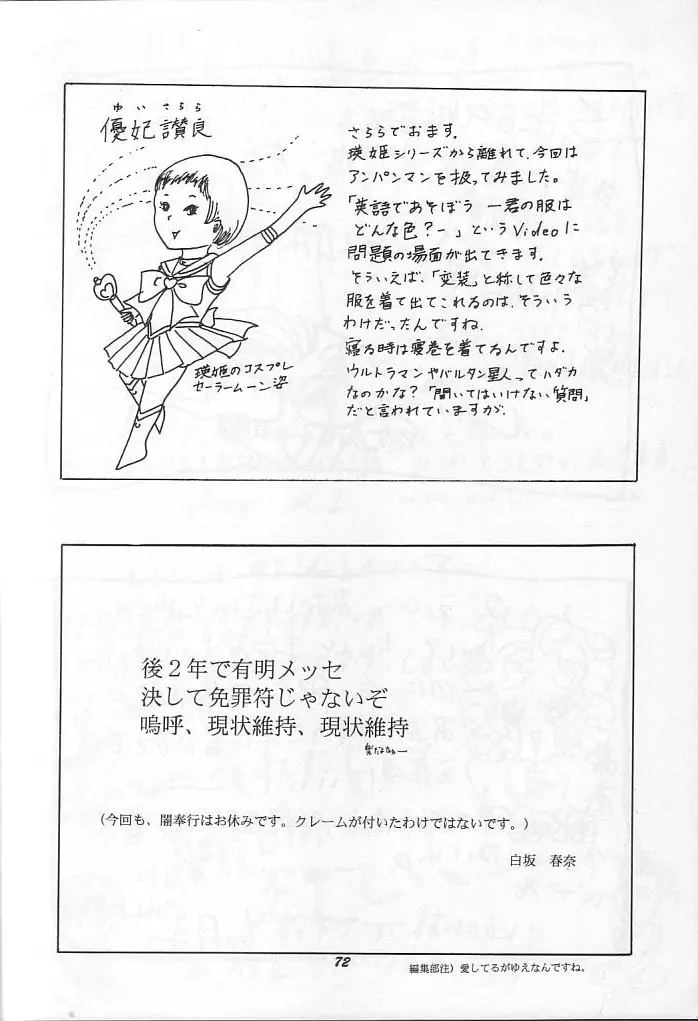 ゆい さらら
優妃 讃良
さららでおます。
瑛姫シリーズから離れて、今回は
アンパンマンを扱ってみました。
「英語であそぼう ー君の服は
どんな色?ー」というVideoに
問題の場面が出てきます。
そういえば、「変装」と称して色々な
服を着て出てこれるのは、そういう
わけだったんですね。
寝る時は寝巻を着てるんですよ。
ウルトラマンやバルタン星人ってハダカ
なのかな?「聞いてはいけない質問」
だと言われていますが。
瑛姫のコスプレ
セーラームーン姿
後2年で有明メッセ
決して免罪符じゃないぞ
嗚呼、現状維持、現状維持
(今回も、闇奉行はお休みです。クレームが付いたわけではないです。)
白坂 春奈
72
編集部注)愛してるがゆえなんですね。